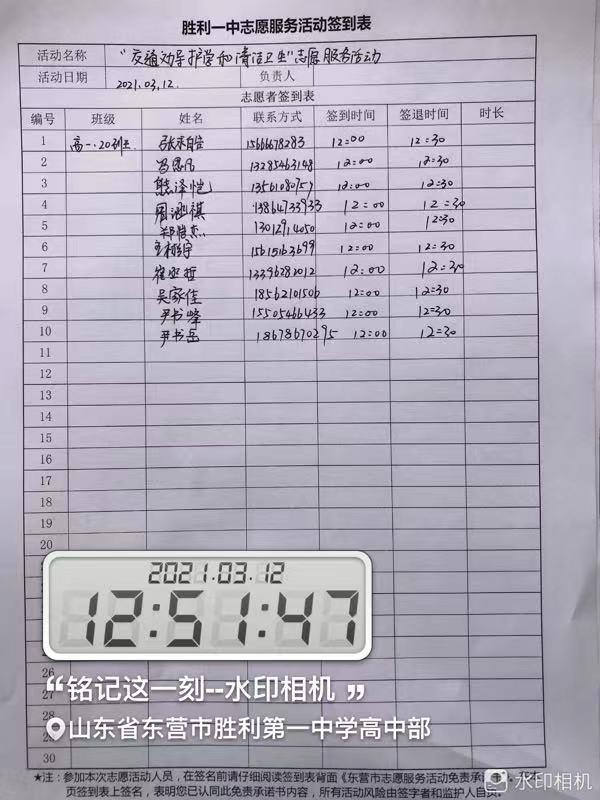 胜利一中志愿服务活动签到表
活动名称 "交通劝导护学和清洁卫生"志愿服务活动
活动日期 2021.03.12. 负责人
志愿者签到表
编号 班级 姓名 联系方式 签到时间 签退时间 时长
1 高一.20班 15666678283 12:00 12:30
2 冯思凡 13285463148 12:00 12:30
3 熊泽恺 1356108075 12:00 12:30
4 周涵祺 13864733933 12:00 12:30
5 13012914050 12:00 12:30
6 王相宇 15615163699 12:00 12:30
7 崔业哲 13396282012 12:00 12:30
8 吴家佳 18562101506 12:00 12:30
9 尹书峰 15505466433 12:00 12:30
10 尹书岳 18678670295 12:00 12:30
11
12
13
14
15
16
17
18
19
20
2021.03.12
12:51:47
26
"铭记这一刻--水印相机"
27
山东省东营市胜利第一中学高中部
28
29
30
★注：参加本次志愿活动人员，在签名前请仔细阅读签到表背面《东营市志愿服务活动免责承
页签到表上签名，表明您已认同此免责承诺书内容，所有活动风险由签字者和监护人自负。
水印相机